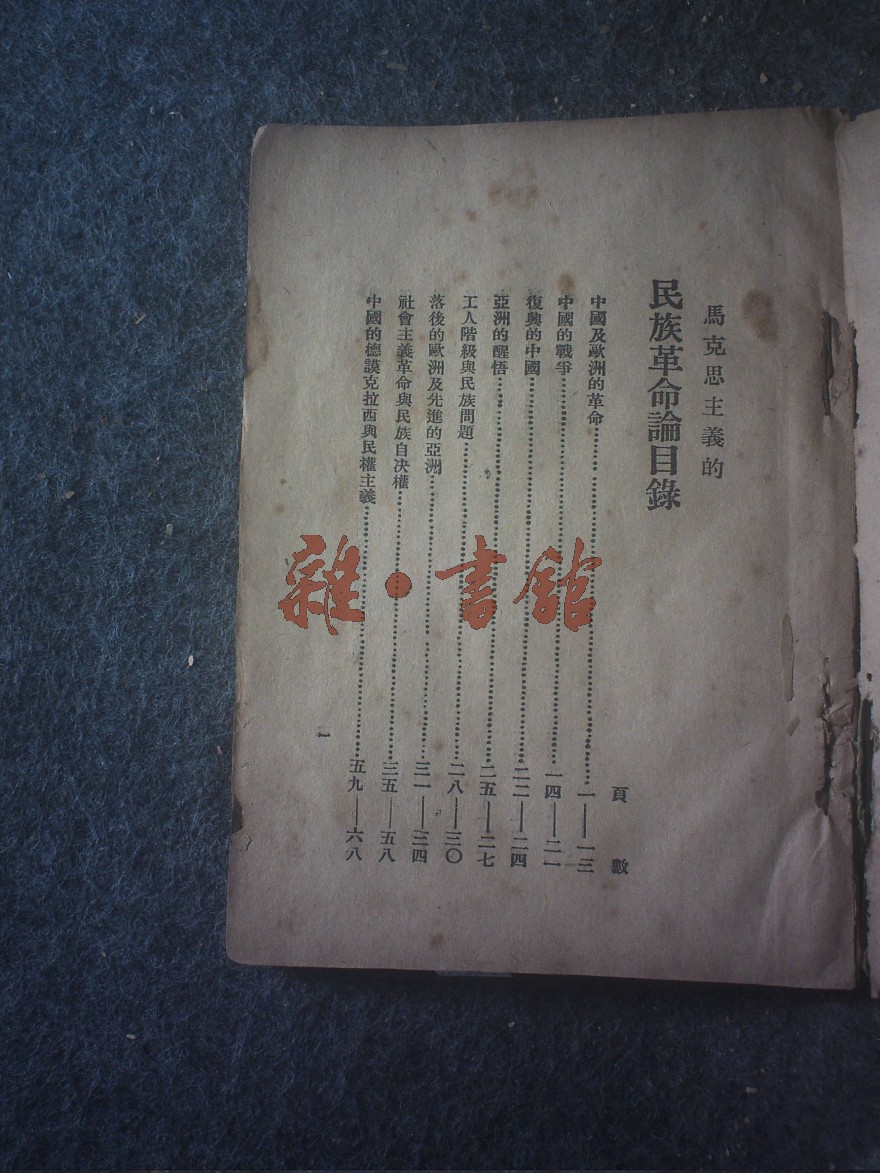 馬克思主義的
民族革命論目錄
頁數
中國及歐洲的革命……一——一三
中國的戰爭……一四——二一
復興的中國……二二——二四
亞洲的醒悟……二五——二七
工人階級與民族問題……二八——三〇
落後的歐洲及先進的亞洲……三一——三四
社會主義革命與民族自決權……三五——五八
中國的德謨克拉西與民權主義……五九——六八
一
雜·書館